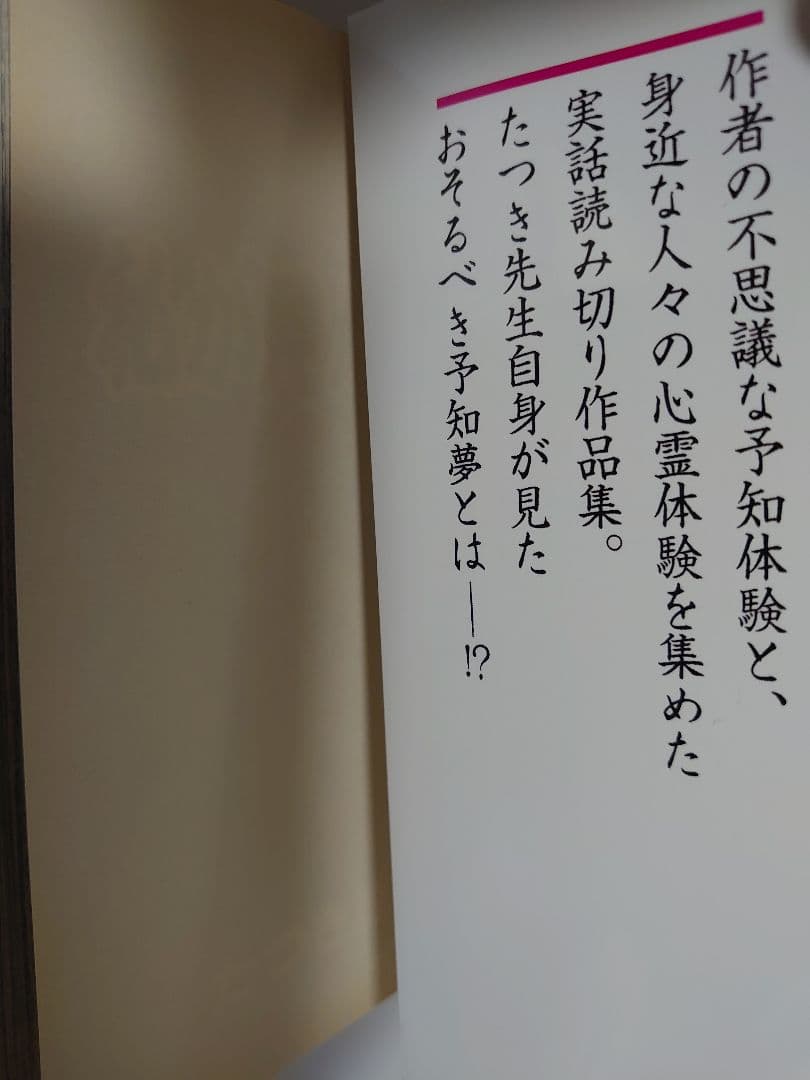 作者の不思議な予知体験と、
身近な人々の心霊体験を集めた
実話読み切り作品集。
たつき先生自身が見た
おそるべき予知夢とは――!?